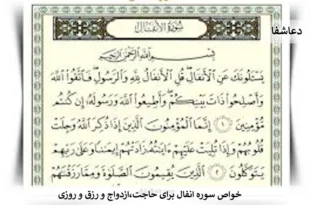 دعاشفا
سورة الأنفال
بسم الله الرحمن الرحيم
يَسْـَٔلُونَكَ عَنِ الْأَنفَالِ قُلِ الْأَنفَالُ لِلَّهِ وَالرَّسُولِ فَاتَّقُوا اللَّهَ
وَأَصْلِحُوا ذَاتَ بَيْنِكُمْ وَأَطِيعُوا اللَّهَ وَرَسُولَهُ إِن كُنتُم
مُّؤْمِنِينَ ١ إِنَّمَا الْمُؤْمِنُونَ الَّذِينَ إِذَا ذُكِرَ اللَّهُ وَجِلَتْ
قُلُوبُهُمْ وَإِذَا تُلِيَتْ عَلَيْهِمْ ءَايَٰتُهُ زَادَتْهُمْ إِيمَٰنًا وَعَلَىٰ رَبِّهِمْ
يَتَوَكَّلُونَ ٢ الَّذِينَ يُقِيمُونَ الصَّلَوٰةَ وَمِمَّا رَزَقْنَٰهُمْ
خواص سوره انفال برای حاجت،ازدواج و رزق و روزی